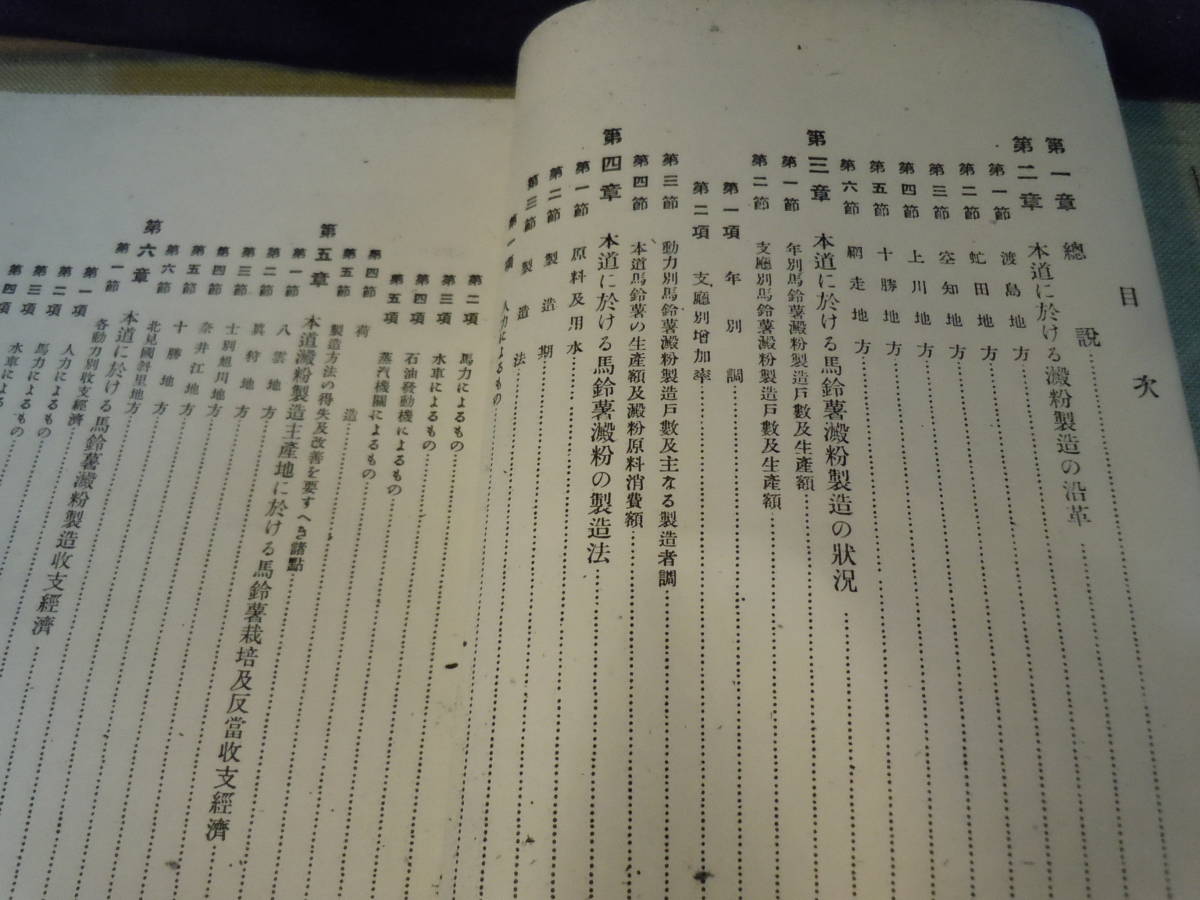 目次
第一章 總説
第二章 本道に於ける澱粉製造の沿革
第一節 渡島地方
第二節 虻田地方
第三節 空知地方
第四節 上川地方
第五節 十勝地方
第六節 網走地方
第三章 本道に於ける馬鈴薯澱粉製造の狀况
第一節 年別馬鈴薯澱粉製造戸數及生産額
第二節 支廳別馬鈴薯澱粉製造戸數及生産額
第一項 年別調
第二項 支廳別增加率
第三節 動力別馬鈴薯澱粉製造戸數及主なる製造者調
第四節 本道馬鈴薯の生産額及澱粉原料消費額
第四章 本道に於ける馬鈴薯澱粉の製造法
第一節 原料及用水
第二節 製造期
第三節 製造法
第一項 人力によるもの
第二項 馬力によるもの
第三項 水車によるもの
第四項 石油發動機によるもの
第五項 蒸汽機關によるもの
第四節 荷造
第五節 製造方法の得失及改善を要すへき諸點
第五章 本道澱粉製造主産地に於ける馬鈴薯栽培及反當收支經濟
第一節 八雲地方
第二節 眞狩地方
第三節 士別旭川地方
第四節 奈井江地方
第五節 十勝地方
第六節 北見國斜里地方
第六章 本道に於ける馬鈴薯澱粉製造收支經濟
第一節 各動力別收支經濟
第一項 人力によるもの
第二項 馬力によるもの
第三項 水車によるもの
第四項